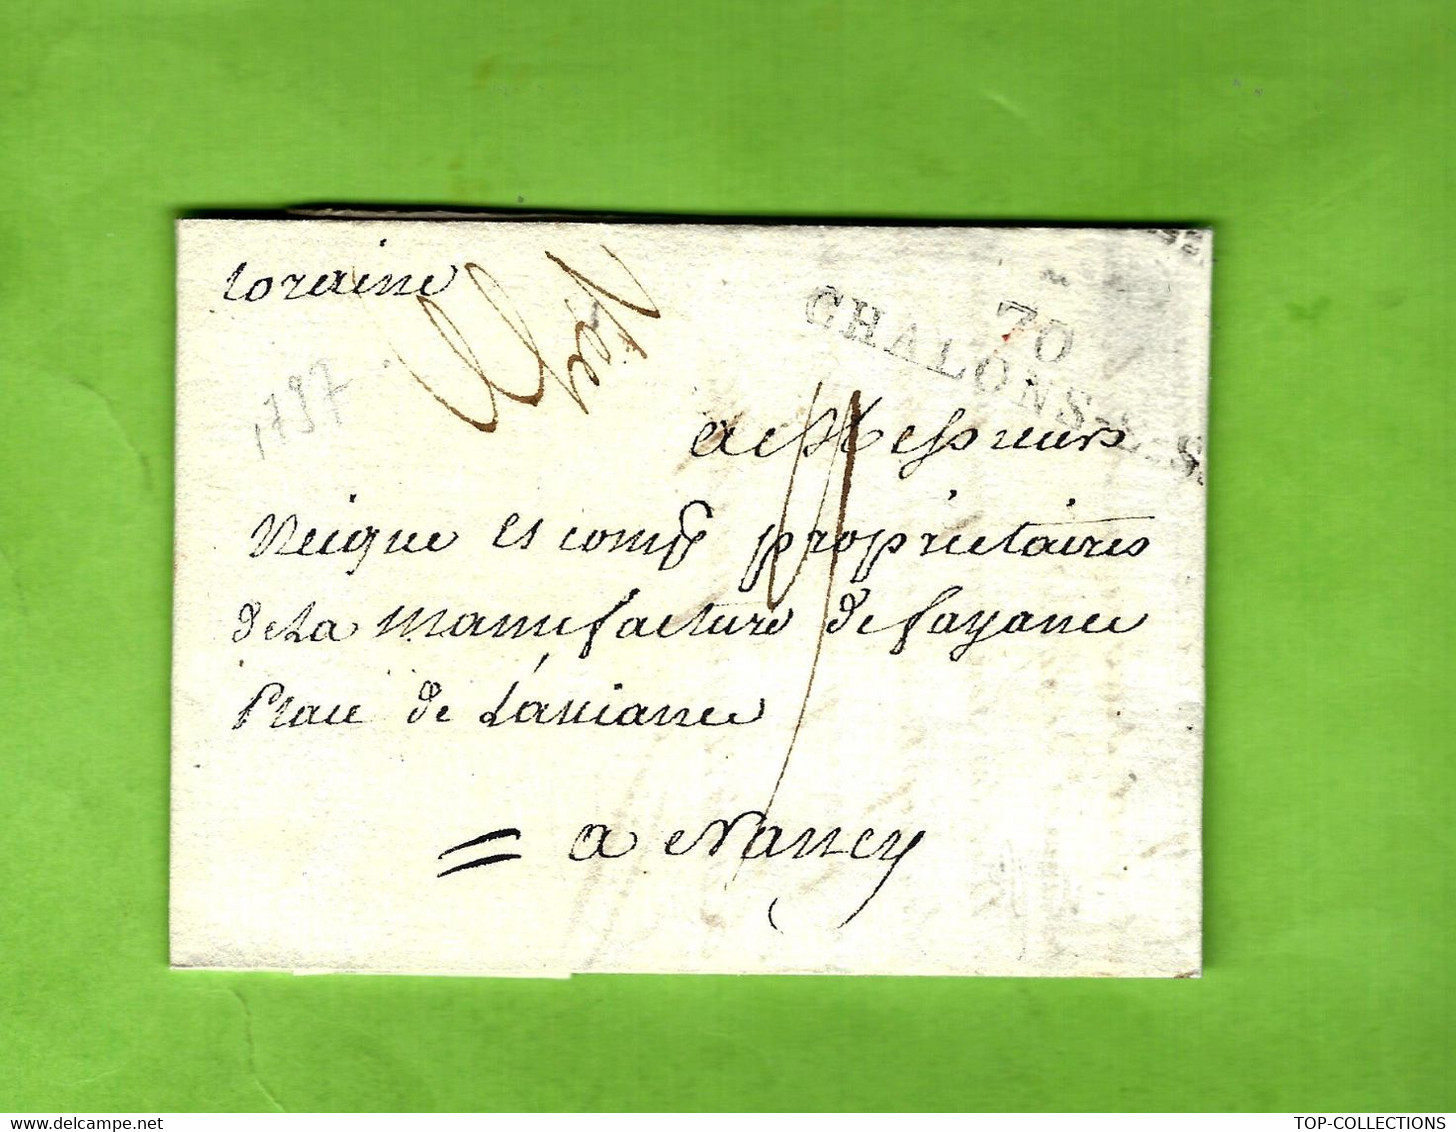 Loraine
1797
70
CHALONS-S-S.
a Messieurs
Neique et comp.e proprietaires
de La manufacture de fayance
Place de L'alliance
= a Nancy
www.delcampe.net
TOP-COLLECTIONS